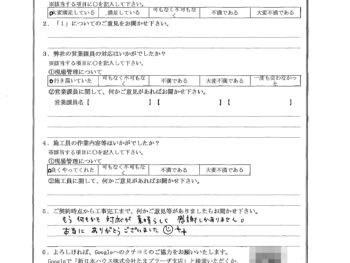 ※該当する項目に○を記入して下さい。
大変満足している 満足している 可もなく不可もなく 不満である 大変不満である
2.「1」についてのご意見をお聞かせ下さい。
3. 弊社の営業議員の対応はいかがでしたか?
※該当する項目に○を記入して下さい。
①現場管理について
行き届いていた 可もなく不可もなく 不満である 大変不満である 一度も会わなかった
②営業議員に関して、何かご意見があればお聞かせ下さい。
営業議員名【 】【 】
4. 施工員の作業内容等はいかがでしたか?
※該当する項目に○を記入して下さい。
①現場管理について
良くやってくれた 可もなく不可もなく 不満である 大変不満である
②施工員に関して、何かご意見がありましたらお聞かせ下さい。
5. ご契約時点から工事完工まで、何かご意見等がありましたらお聞かせ下さい。
もう 何もかも 対応が 素晴らしく 感謝しかありません。
本当に ありがとうございました
6. よろしければ、Googleへのクチコミのご協力をお願いいたします。
Googleで「新日本ハウス株式会社たまプラーザ支店」と検索いただくか、